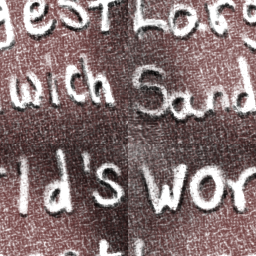 gest Larg
wich Sand
ld's Wor